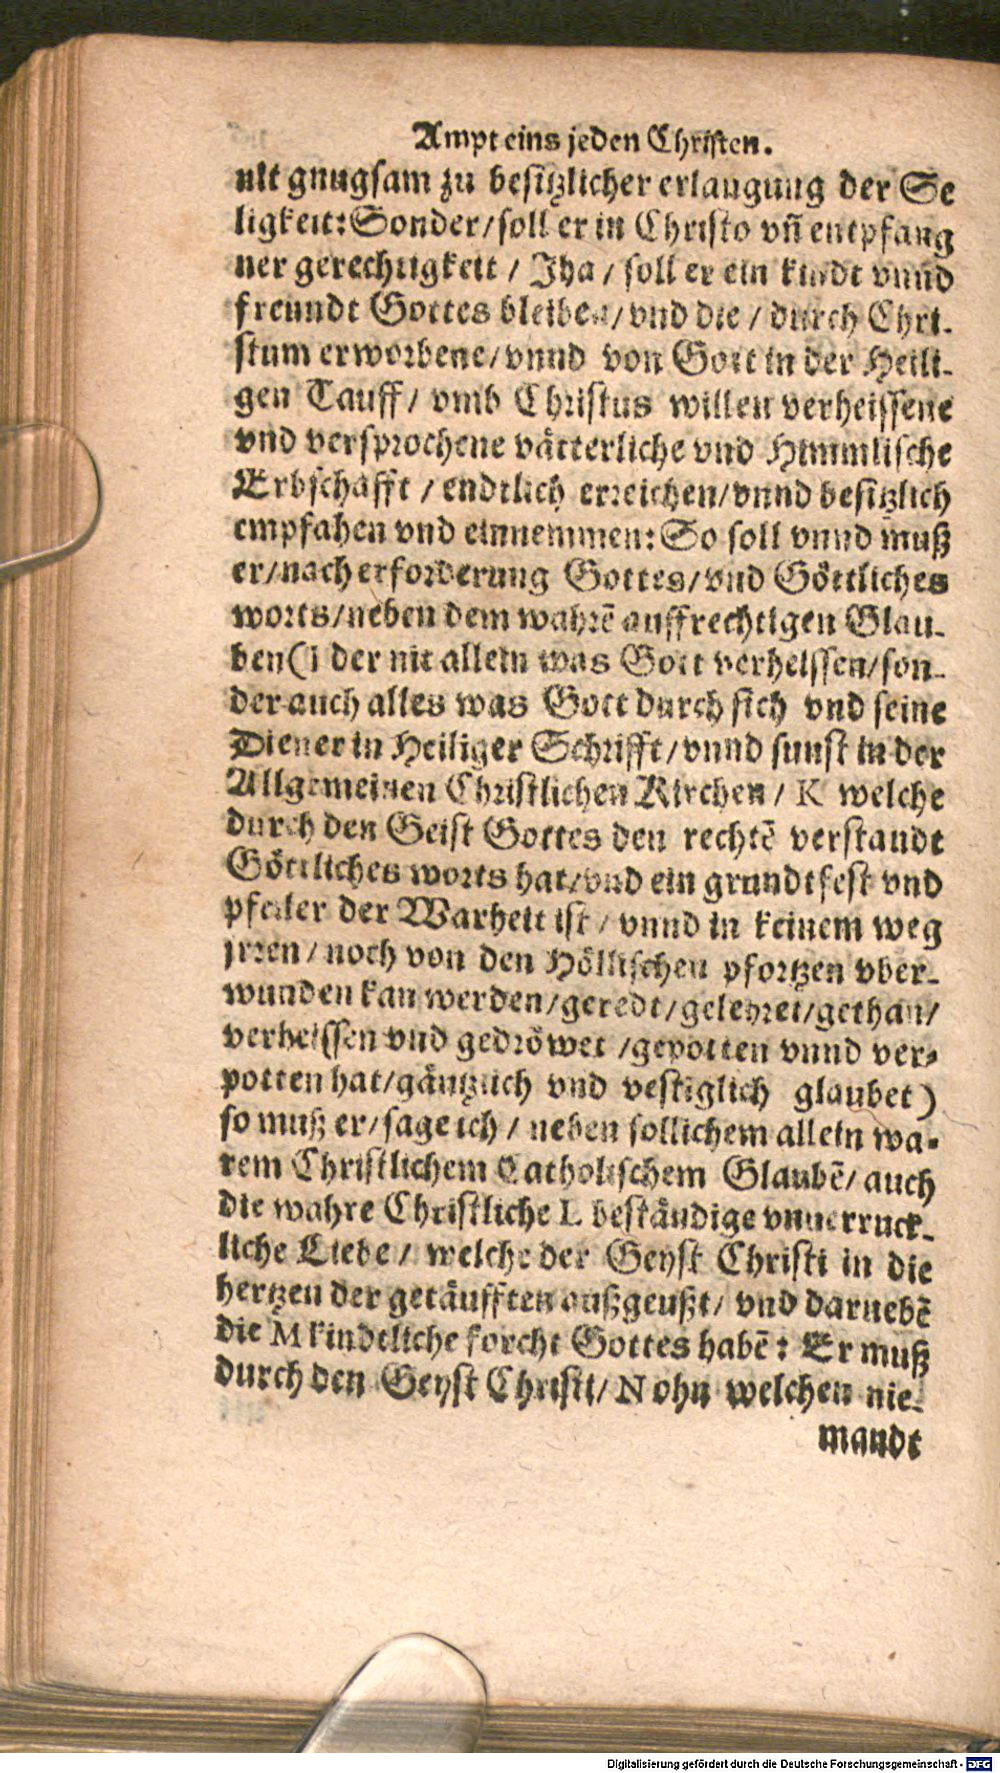 Ampt eins jeden Christen.
nit gnugsam zu besitzlicher erlangung der Se
ligkeit: Sonder/ soll er in Christo vñ entpfang
ner gerechtigkeit / Jha / soll er ein kindt vnnd
freundt Gottes bleiben/ vnd die / durch Chri-
stum erworbene/ vnnd von Gott in der Heili-
gen Tauff/ vmb Christus willen verheissene
vnd versprochene vätterliche vnd Himmlische
Erbschafft / endtlich erreichen/ vnnd besitzlich
empfahen vnd einnemmen: So soll vnnd muß
er/ nach erforderung Gottes/ vnd Göttliches
worts/ neben dem wahrē auffrechtigen Glau-
ben (I der nit allein was Gott verheissen/ son-
der auch alles was Gott durch sich vnd seine
Diener in Heiliger Schrifft/ vnnd sunst in der
Allgemeinen Christlichen Kirchen / K welche
durch den Geist Gottes den rechtē verstandt
Göttliches worts hat/ vnd ein grundtfest vnd
pfeiler der Warheit ist / vnnd in keinem weg
jrren / noch von den Höllischen pfortzen vber-
wunden kan werden/ geredt/ gelehret/ gethan/
verheissen vnd gedröwet / gepotten vnnd ver-
potten hat/ gäntzlich vnd vestiglich glaubet)
so muß er/ sage ich / neben sollichem allein wa-
rem Christlichem Catholischem Glaubē/ auch
die wahre Christliche L beständige vnuerruck-
liche Liebe / welche der Geyst Christi in die
hertzen der getäufften außgeußt/ vnd darnebē
die M kindtliche forcht Gottes habē: Er muß
durch den Geyst Christi/ N ohn welchen nie-
mandt
Digitalisierung gefördert durch die Deutsche Forschungsgemeinschaft - DFG